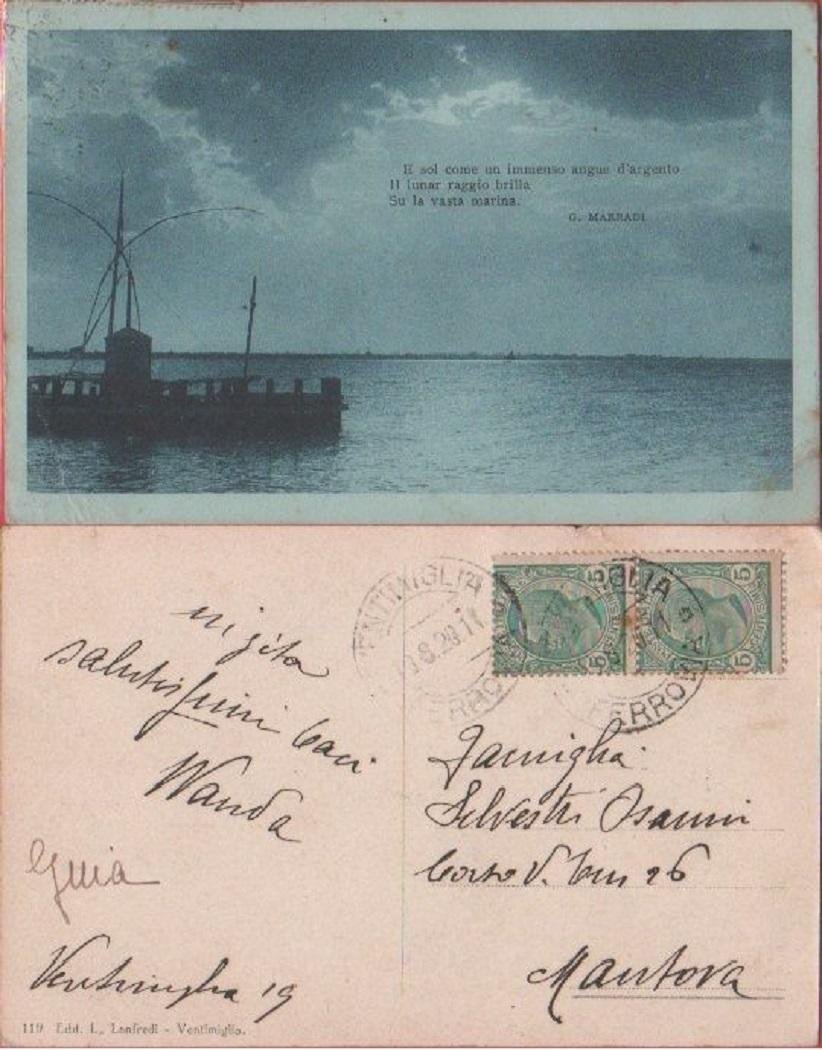 E sol come un immenso angue d'argento
Il lunar raggio brilla
Su la vasta marina.
G. MARRADI
VENTIMIGLIA
8.20.11
FERRO
IGLIA
FERRO
5 5
5 5
in gita
salutissimi baci
Wanda
Ventimiglia 19
119 Edit. L. Lanfredi - Ventimiglia.
Famiglia
Silvestri Osanni
Corso V. Em 26
Mantova